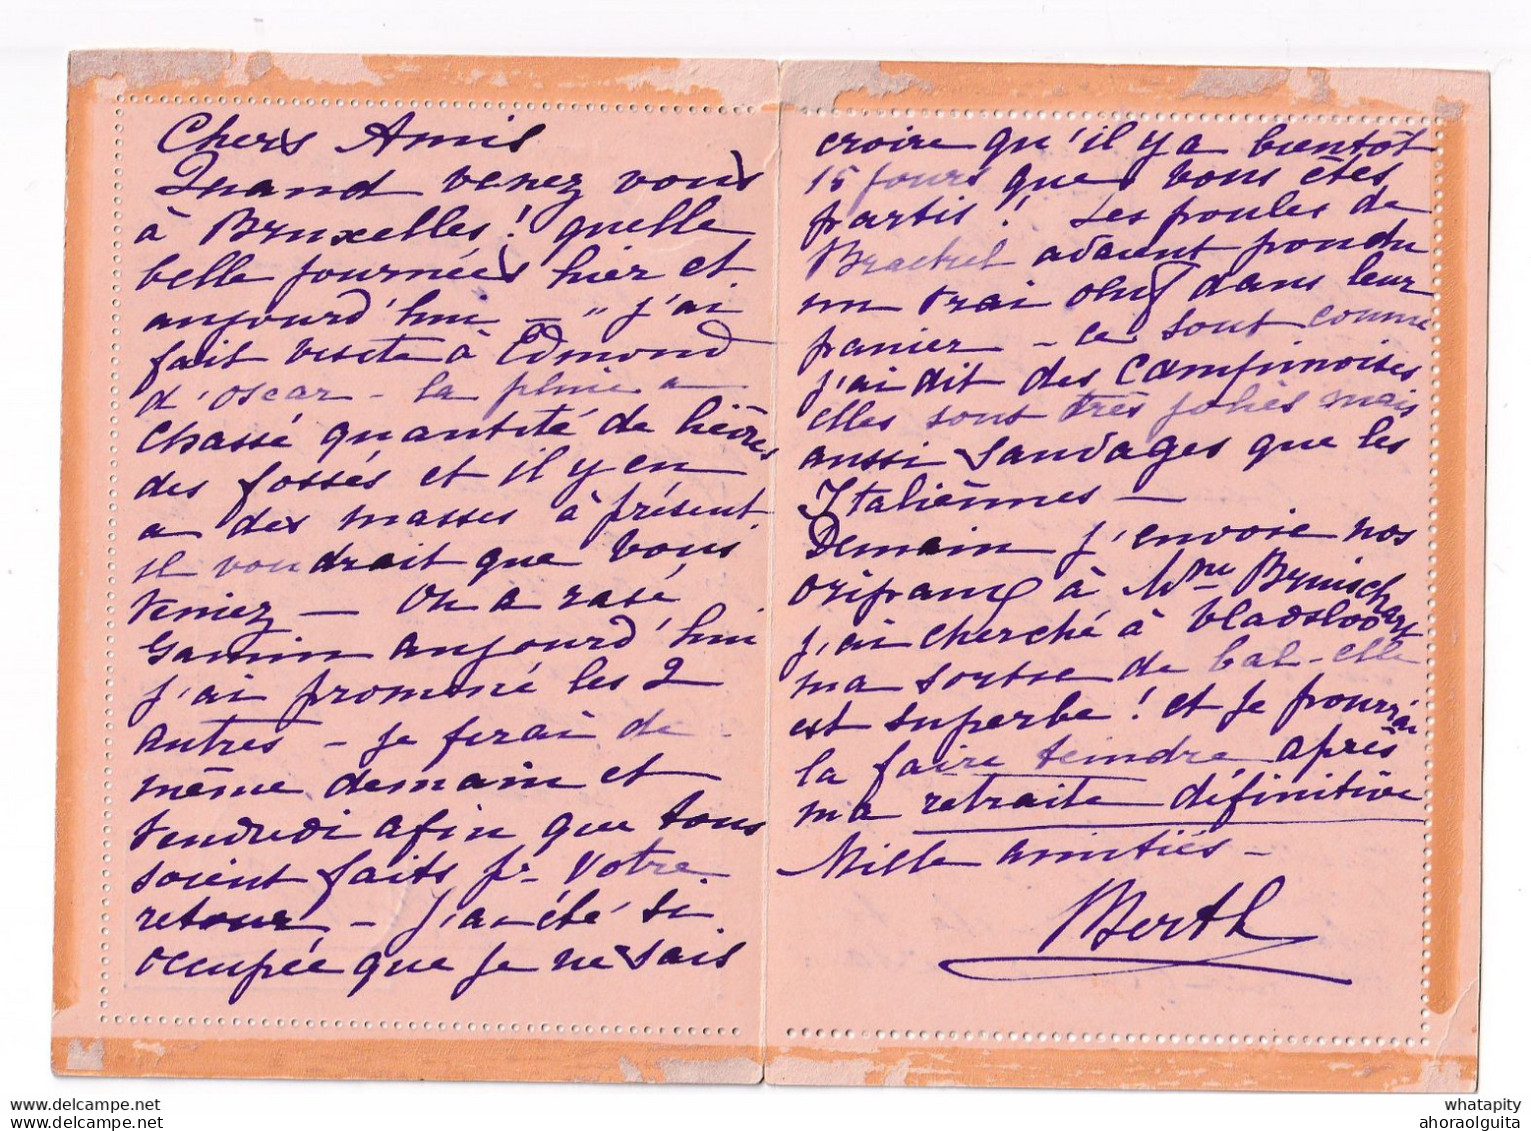 Chers Amis
Quand venez vous
à Bruxelles! quelle
belle journées hier et
aujourd'hui — " j'ai
fait visite à Edmond
d'oscar - la pluie a
chassé quantité de lièvres
des fossés et il y en
a des masses à présent
il voudrait que vous
veniez — On a rasé
Gamin aujourd'hui
j'ai promené les 2
autres - je ferai de
même demain et
vendredi afin que tous
soient faits pr votre
retour - j'ai été si
occupée que je ne sais
croire qu'il y a bientôt
15 jours que vous êtes
partis! Les poules de
avaient pondu
un vrai oeuf dans leur
panier - ce sont comme
j'ai dit des Campinoises
elles sont très jolies mais
aussi sauvages que les
Italiènnes —
Demain j'envoie nos
à Mme
j'ai cherché à Vladsloo
ma sortie de bal - elle
est superbe! et je pourrai
la faire teindre après
ma retraite définitive
Mille amitiés -
Berth
whatapity
ahoraolguita
whatapity
ahoraolguita